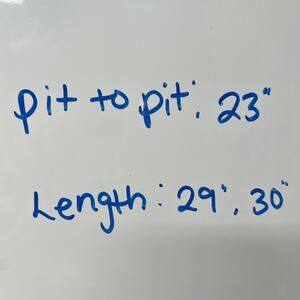 pit to pit: 23"
Length: 29", 30"